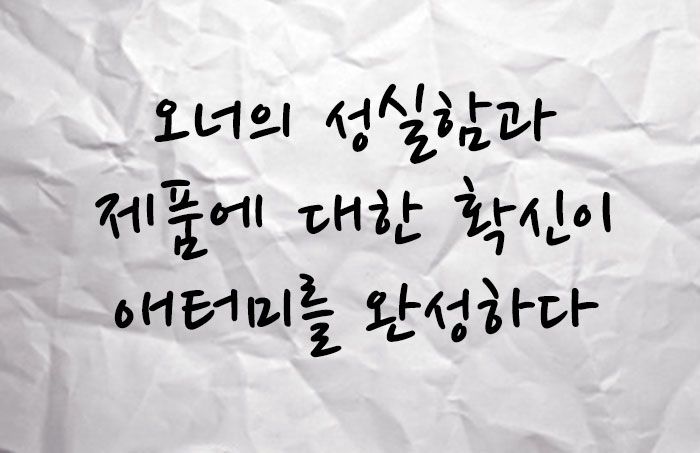 오너의 성실함과
제품에 대한 확신이
애터미를 완성하다